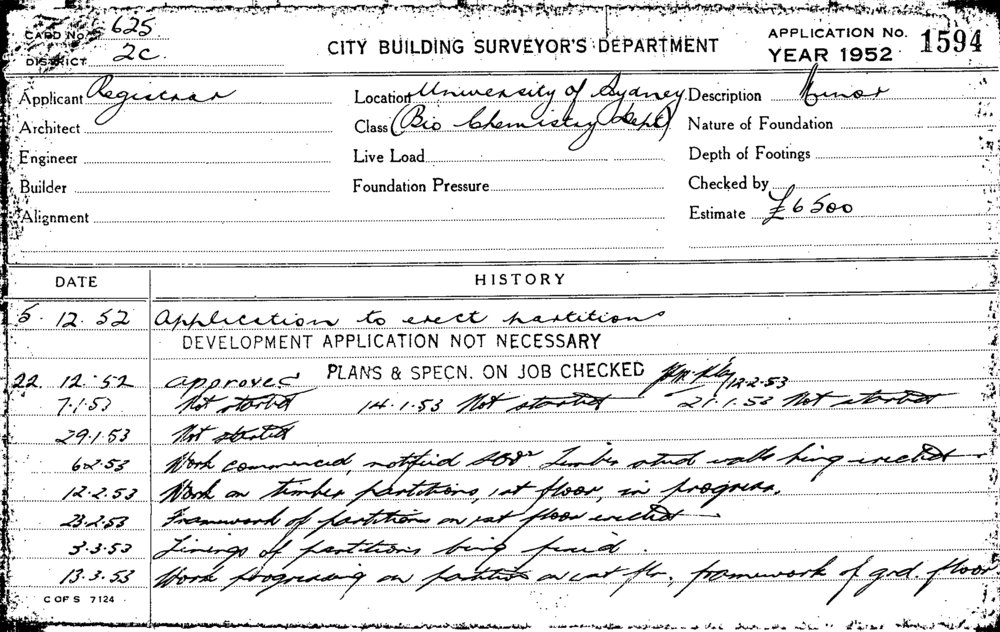 CARD No. 625
DISTRICT 2C.
CITY BUILDING SURVEYOR'S DEPARTMENT
APPLICATION No. 1594
YEAR 1952
Applicant Registrar
Location University of Sydney
Description Minor
Architect
Class (Bio Chemistry Dept)
Nature of Foundation
Engineer
Live Load
Depth of Footings
Builder
Foundation Pressure
Checked by
Alignment
Estimate £6500
DATE HISTORY
5. 12. 52 Application to erect partitions
DEVELOPMENT APPLICATION NOT NECESSARY
22. 12. 52 approved PLANS & SPECN. ON JOB CHECKED 12-2-53
7.1.53 Not started 14.1.53 Not started 21.1.53 Not started
29.1.53 Not started
6.2.53 Work commenced, notified Timber stud walls being erected
12.2.53 Work on timber partitions, 1st floor, in progress.
23.2.53 Framework of partitions on 1st floor erected
3.3.53 Linings of partitions being fixed.
13.3.53 Work progressing on partitions on 1st flr, framework of grd. floor
C OF S 7124